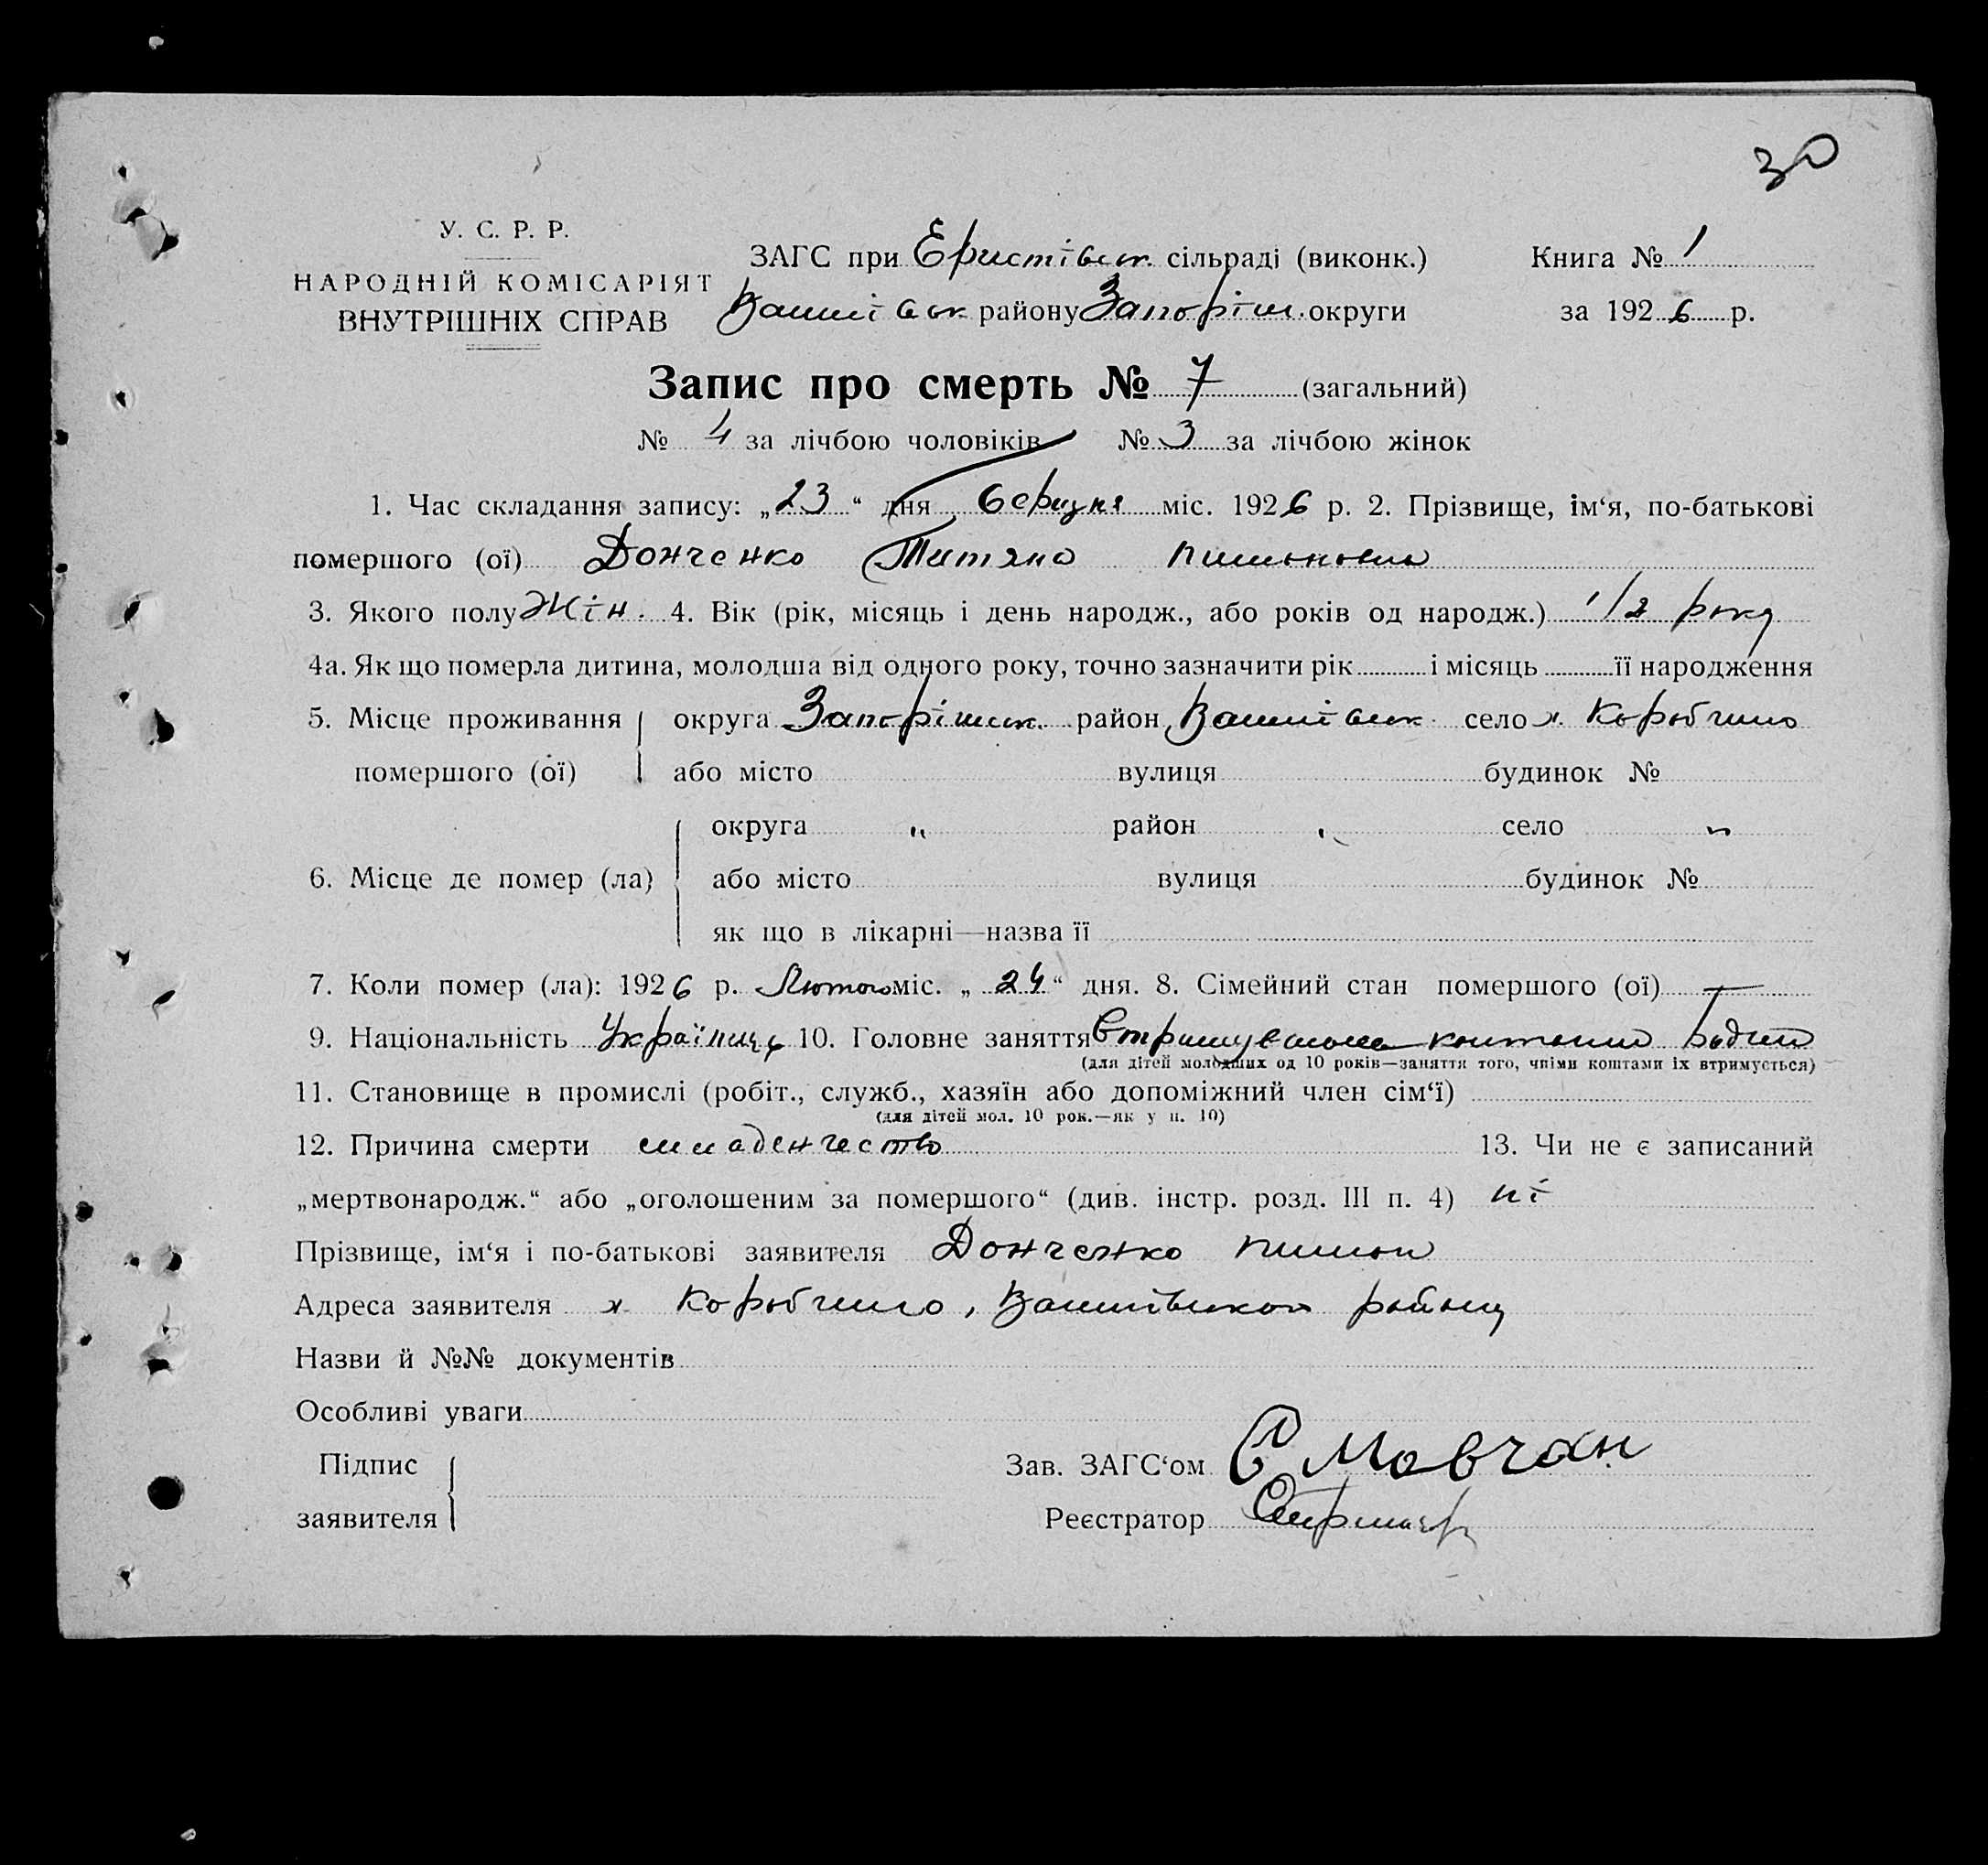 30
У. С. Р. Р.
НАРОДНІЙ КОМІСАРІЯТ
ВНУТРІШНІХ СПРАВ
ЗАГС при Еристівськ. сільраді (виконк.)
району Запоріж. округи
Книга № 1
за 1926 р.
Запис про смерть № 7 (загальний)
№ 4 за лічбою чоловіків № 3 за лічбою жінок
1. Час складання запису: „23“ дня березня міс. 1926 р. 2. Прізвище, ім‘я, по-батькові
помершого (ої) Донченко Титяна
3. Якого полу Жін. 4. Вік (рік, місяць і день народж., або років од народж.) 1/2 року
4а. Як що померла дитина, молодша від одного року, точно зазначити рік і місяць її народження
5. Місце проживання помершого (ої) округа Запоріжськ. район село х. Коробчино
або місто вулиця будинок №
6. Місце де помер (ла) округа „ район „ село „
або місто вулиця будинок №
як що в лікарні—назва її
7. Коли помер (ла): 1926 р. Лютого міс. „24“ дня. 8. Сімейний стан помершого (ої) —
9. Національність 10. Головне заняття
(для дітей молодших од 10 років—заняття того, чиїми коштами їх втримується)
11. Становище в промислі (робіт., служб., хазяїн або допоміжний член сім‘ї)
(для дітей мол. 10 рок.—як у п. 10)
12. Причина смерти младенчество 13. Чи не є записаний
„мертвонародж.“ або „оголошеним за помершого“ (див. інстр. розд. III п. 4) ні
Прізвище, ім‘я і по-батькові заявителя Донченко
Адреса заявителя х Коробчино, району
Назви й №№ документів
Особливі уваги
Підпис заявителя
Зав. ЗАГС‘ом Мовчан
Реєстратор